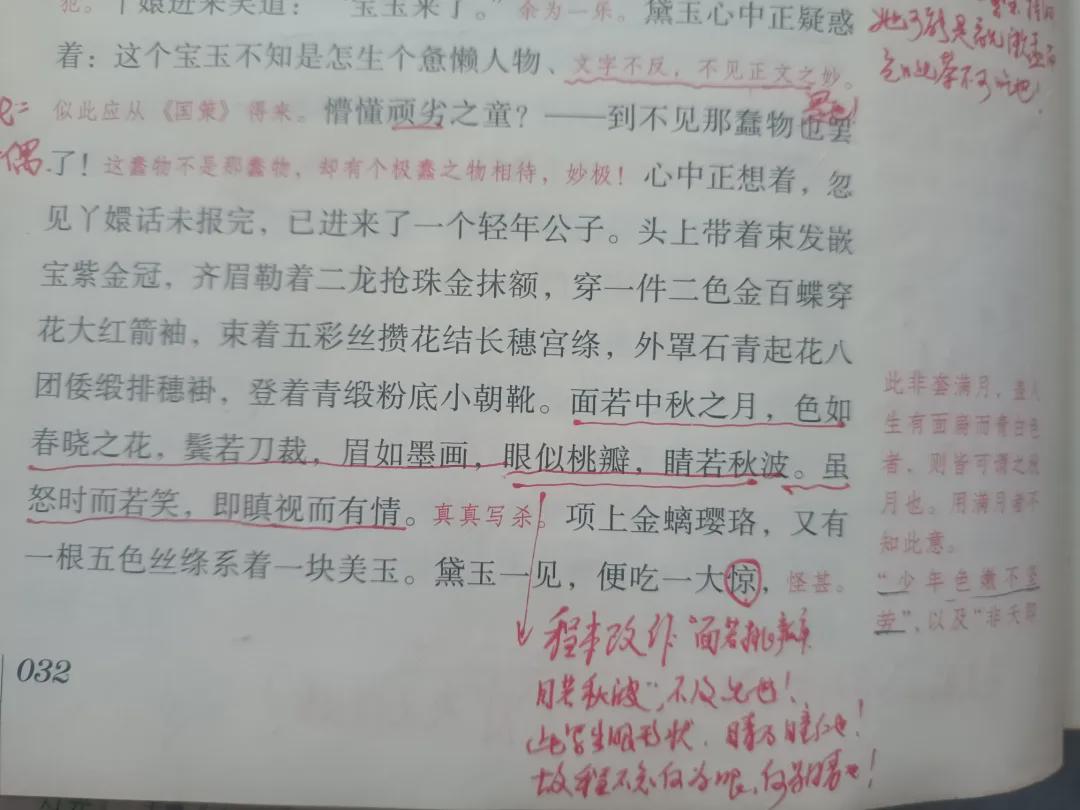 犯。丫嬛进来笑道：“宝玉来了。”余为一乐。黛玉心中正疑惑
着：这个宝玉不知是怎生个惫懒人物、文字不反，不见正文之妙。
似此应从《国策》得来。懵懂顽劣之童？——到不见那蠢物也罢
了！这蠢物不是那蠢物，却有个极蠢之物相待，妙极！心中正想着，忽
见丫嬛话未报完，已进来了一个轻年公子。头上带着束发嵌
宝紫金冠，齐眉勒着二龙抢珠金抹额，穿一件二色金百蝶穿
花大红箭袖，束着五彩丝攒花结长穗宫绦，外罩石青起花八
团倭缎排穗褂，登着青缎粉底小朝靴。面若中秋之月，色如
春晓之花，鬓若刀裁，眉如墨画，眼似桃瓣，睛若秋波。虽
怒时而若笑，即瞋视而有情。真真写杀。项上金螭璎珞，又有
一根五色丝绦系着一块美玉。黛玉一见，便吃一大惊，怪甚。
此非套满月，盖人
生有面扇而青白色
者，则皆可谓之秋
月也。用满月者不
知此意。
“少年色嫩不坚
劳”，以及“非夭即
程本改作“面若桃瓣
目若秋波”，不及也！
032